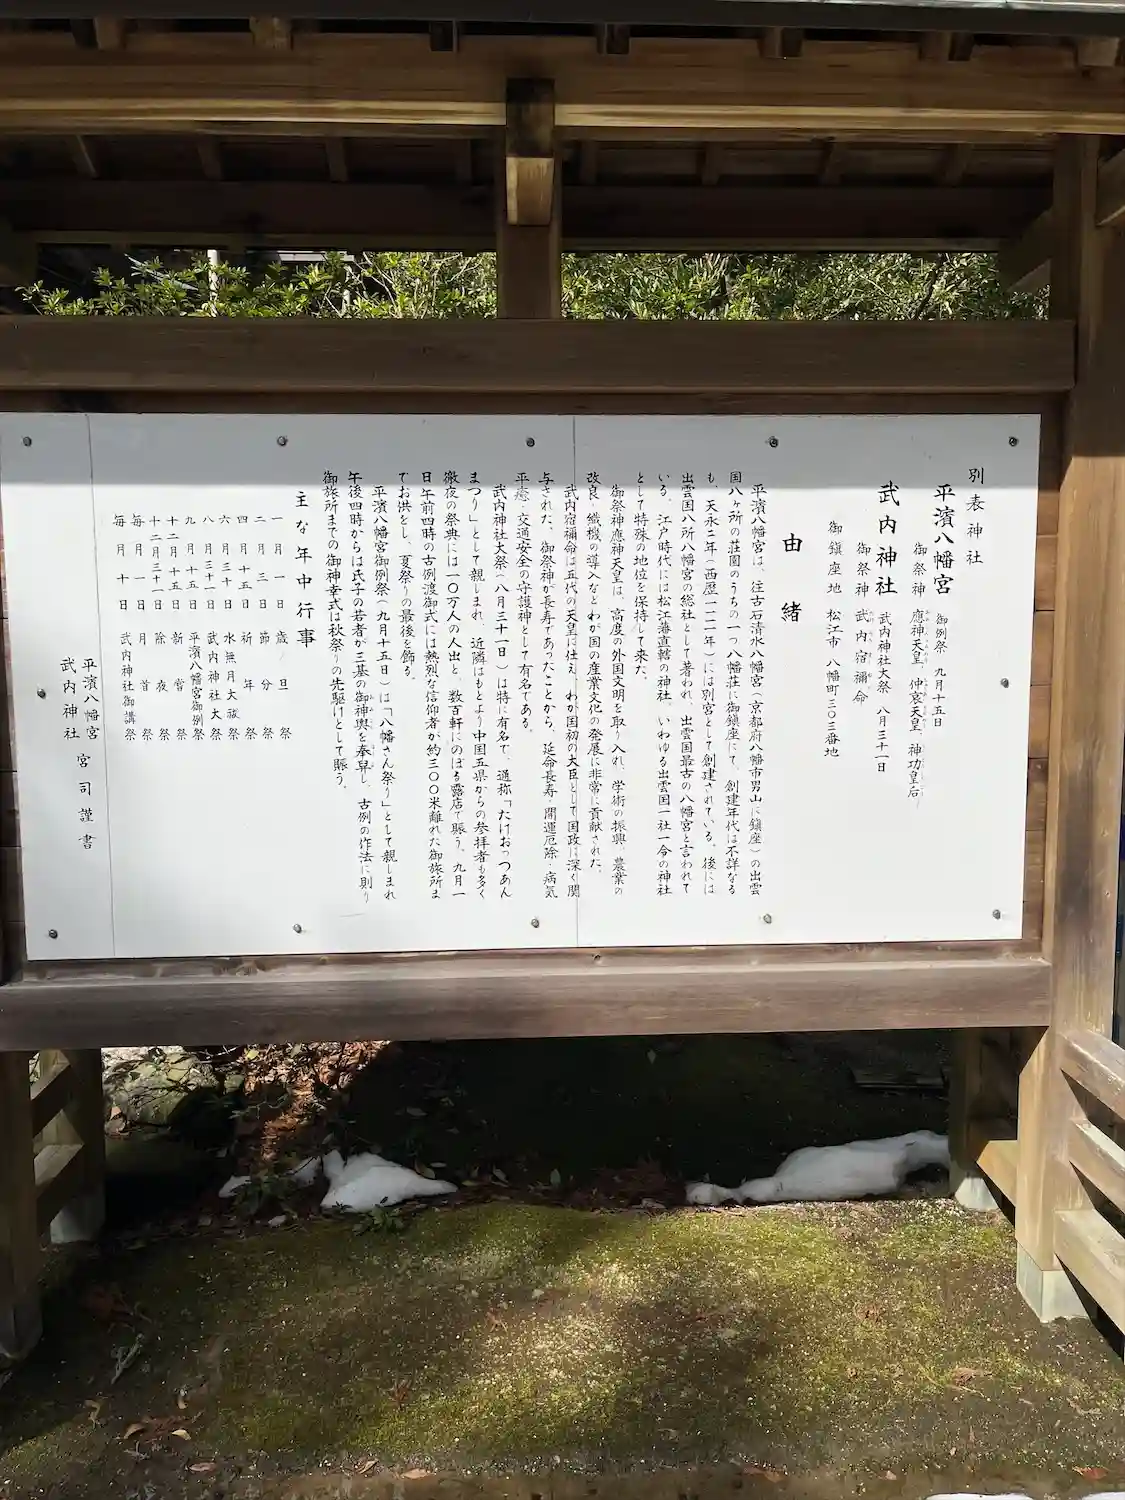 別表神社
平濱八幡宮 御例祭 九月十五日
御祭神 應神天皇、仲哀天皇、神功皇后
武内神社 武内神社大祭 八月三十一日
御祭神 武内宿禰命
御鎮座地 松江市八幡町三〇三番地
由緒
平濱八幡宮は、往古石清水八幡宮(京都府八幡市男山に鎮座)の出雲
国八ヶ所の荘園のうちの一つ八幡荘に御鎮座にて、創建年代は不詳なる
も、天永二年(西歴一一一一年)には別宮として創建されている。後には
出雲国八所八幡宮の総社として著われ、出雲国最古の八幡宮と言われて
いる。江戸時代には松江藩直轄の神社、いわゆる出雲国一社一令の神社
として特殊の地位を保持して来た。
御祭神應神天皇は、高度の外国文明を取り入れ、学術の振興、農業の
改良、織機の導入などわが国の産業文化の発展に非常に貢献された。
武内宿禰命は五代の天皇に仕え、わが国初の大臣として国政に深く関
与された、御祭神が長寿であったことから、延命長寿・開運厄除・病気
平癒・交通安全の守護神として有名である。
武内神社大祭(八月三十一日)は特に有名で、通称「たけおっつあん
まつり」として親しまれ、近隣はもとより中国五県からの参拝者も多く
徹夜の祭典には一〇万人の人出と、数百軒にのぼる露店で賑う。九月一
日午前四時の古例渡御式には熱烈な信仰者が約三〇〇米離れた御旅所ま
でお供をし、夏祭りの最後を飾る。
平濱八幡宮御例祭(九月十五日)は「八幡さん祭り」として親しまれ
午後四時からは氏子の若者が三基の御神輿を奉舁し、古例の作法に則り
御旅所までの御神幸式は秋祭りの先駆けとして賑う。
主な年中行事
一月一日 歳旦祭
二月三日 節分祭
四月十五日 祈年祭
六月三十日 水無月大祓祭
八月三十一日 武内神社大祭
九月十五日 平濱八幡宮御例祭
十二月十五日 新嘗祭
十二月三十一日 除夜祭
毎月一日 月首祭
毎月十日 武内神社御講祭
平濱八幡宮
武内神社 宮司謹書